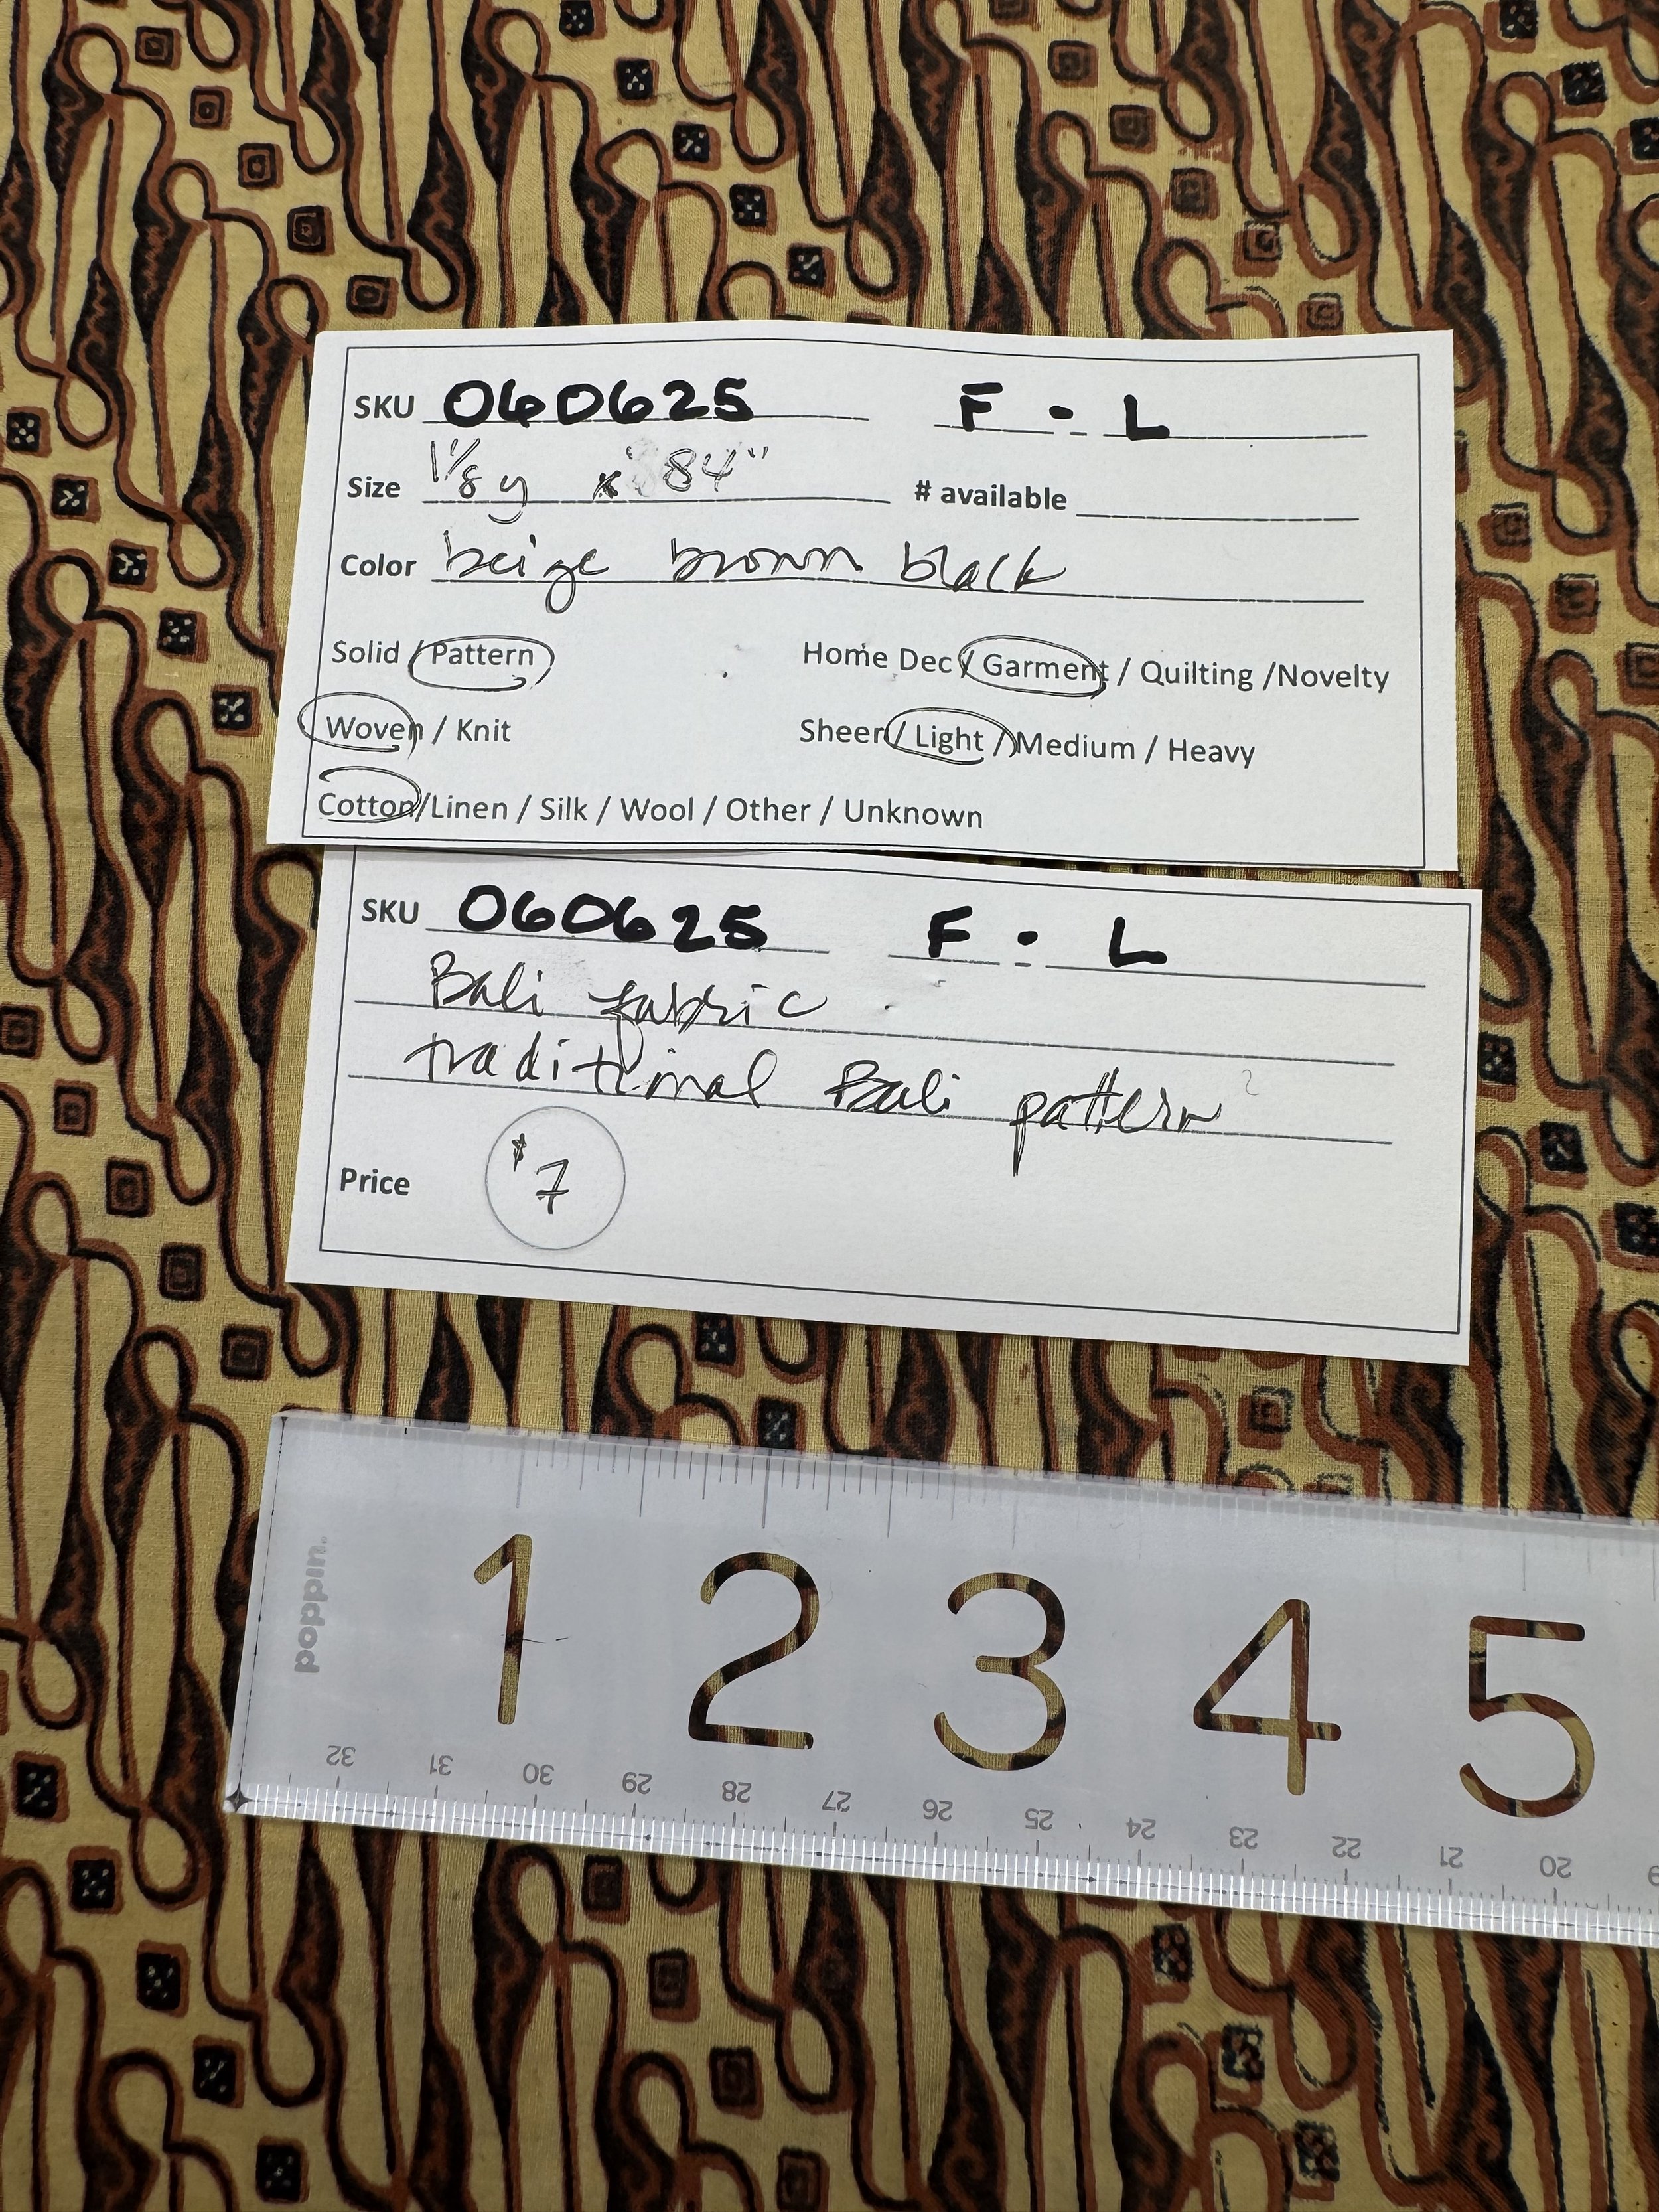 SKU 060625 F - L
Size 1 1/8 y x 84" # available
Color beige brown black
Solid / Pattern Home Dec / Garment / Quilting /Novelty
Woven / Knit Sheer / Light / Medium / Heavy
Cotton/Linen / Silk / Wool / Other / Unknown
SKU 060625 F - L
Bali fabric
traditional Bali pattern
Price $7
poppin.
1 2 3 4 5
32 31 30 29 28 27 26 25 24 23 22 21 20